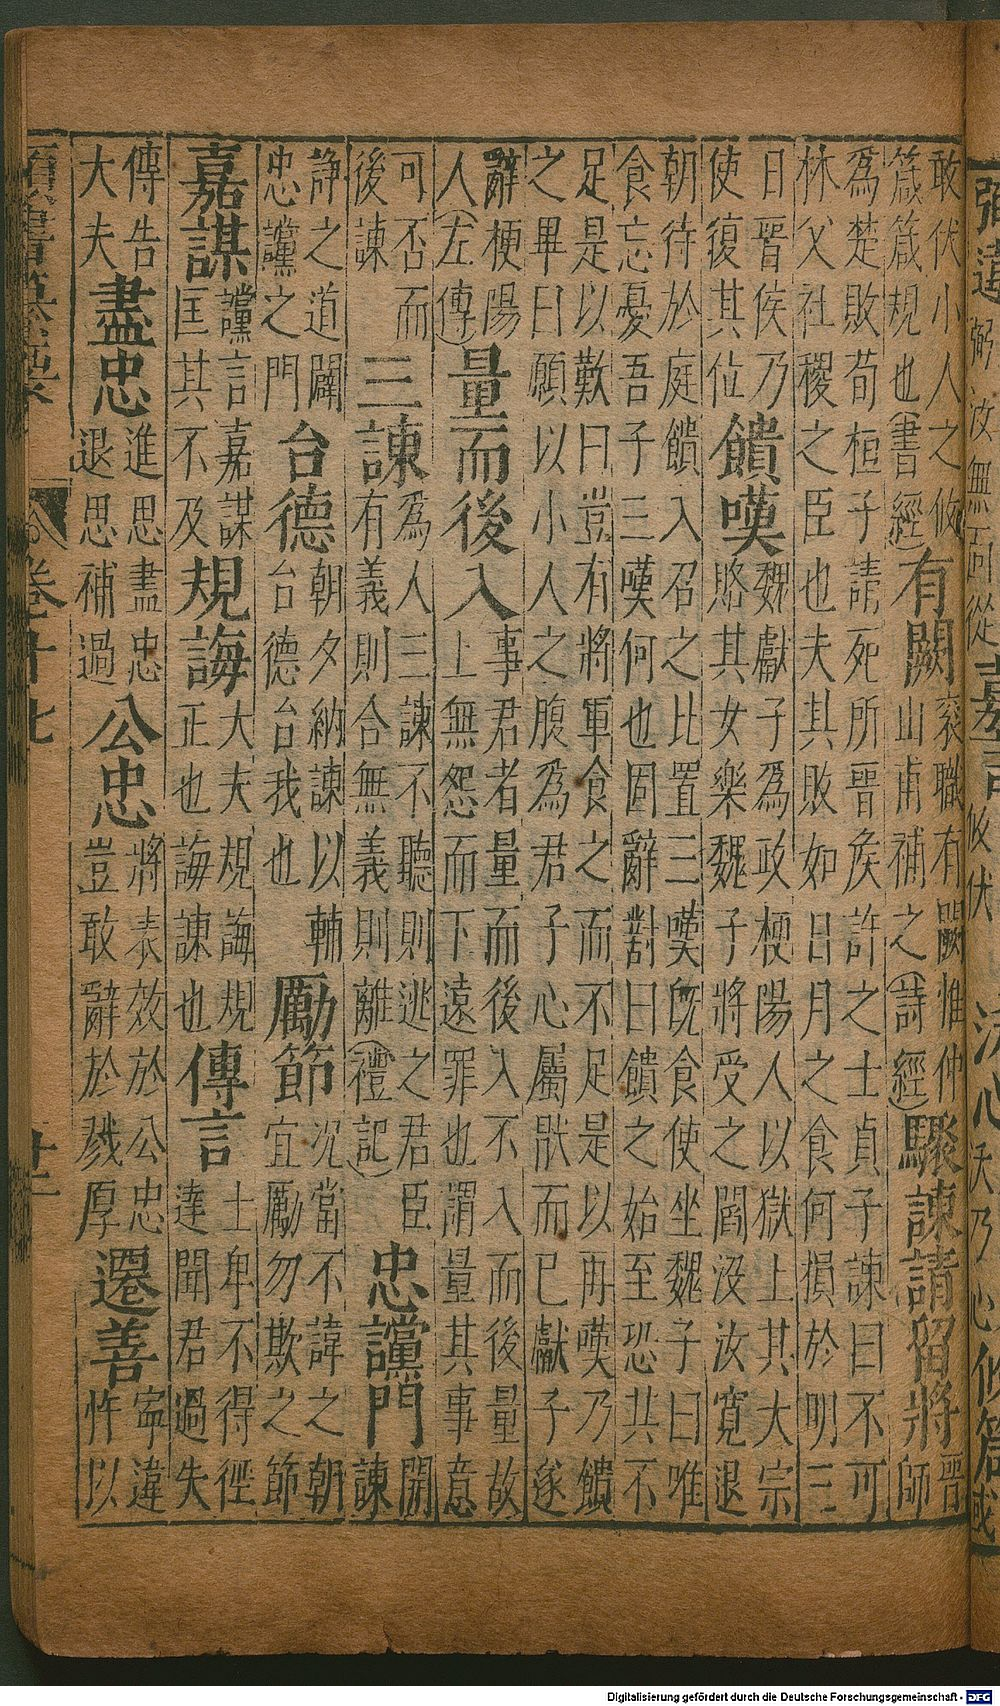 敢伏小人之攸箴箴規也(書經)有闕衮職有闕惟仲山甫補之(詩經)驟諫請留將晉師
為楚敗荀桓子請死所晉侯許之士貞子諫曰不可林父社稷之臣也夫其敗如日月之食何損於明三
日晉侯乃使復其位饋嘆魏獻子為政梗陽人以獄上其大宗賂其女樂魏子將受之閻沒汝寬退
朝待於庭饋入召之比置三嘆既食使坐魏子曰唯食忘憂吾子三嘆何也固辭對曰饋之始至恐其不
足是以歎曰豈有將軍食之而不足是以再嘆乃饋之畢曰願以小人之腹為君子心屬猒而已獻子遂
辭梗陽人(左傳)量而後入事君者量而後入不入而後量故上無怨而下遠罪也謂量其事意
可否而後諫三諫為人三諫不聽則逃之君臣有義則合無義則離(禮記)忠讜門開諫
諍之道闢忠讜之門台德朝夕納諫以輔台德台我也勵節況當不諱之朝宜勵勿欺之節
嘉謀讜言嘉謀匡其不及規誨大夫規誨規正也誨諫也傳言士卑不得徑達聞君過失
傳告大夫盡忠進思盡忠退思補過公忠將表效於公忠豈敢辭於戮厚遷善寍違怍以
卷十七
廿二
Digitalisierung gefördert durch die Deutsche Forschungsgemeinschaft - DFG